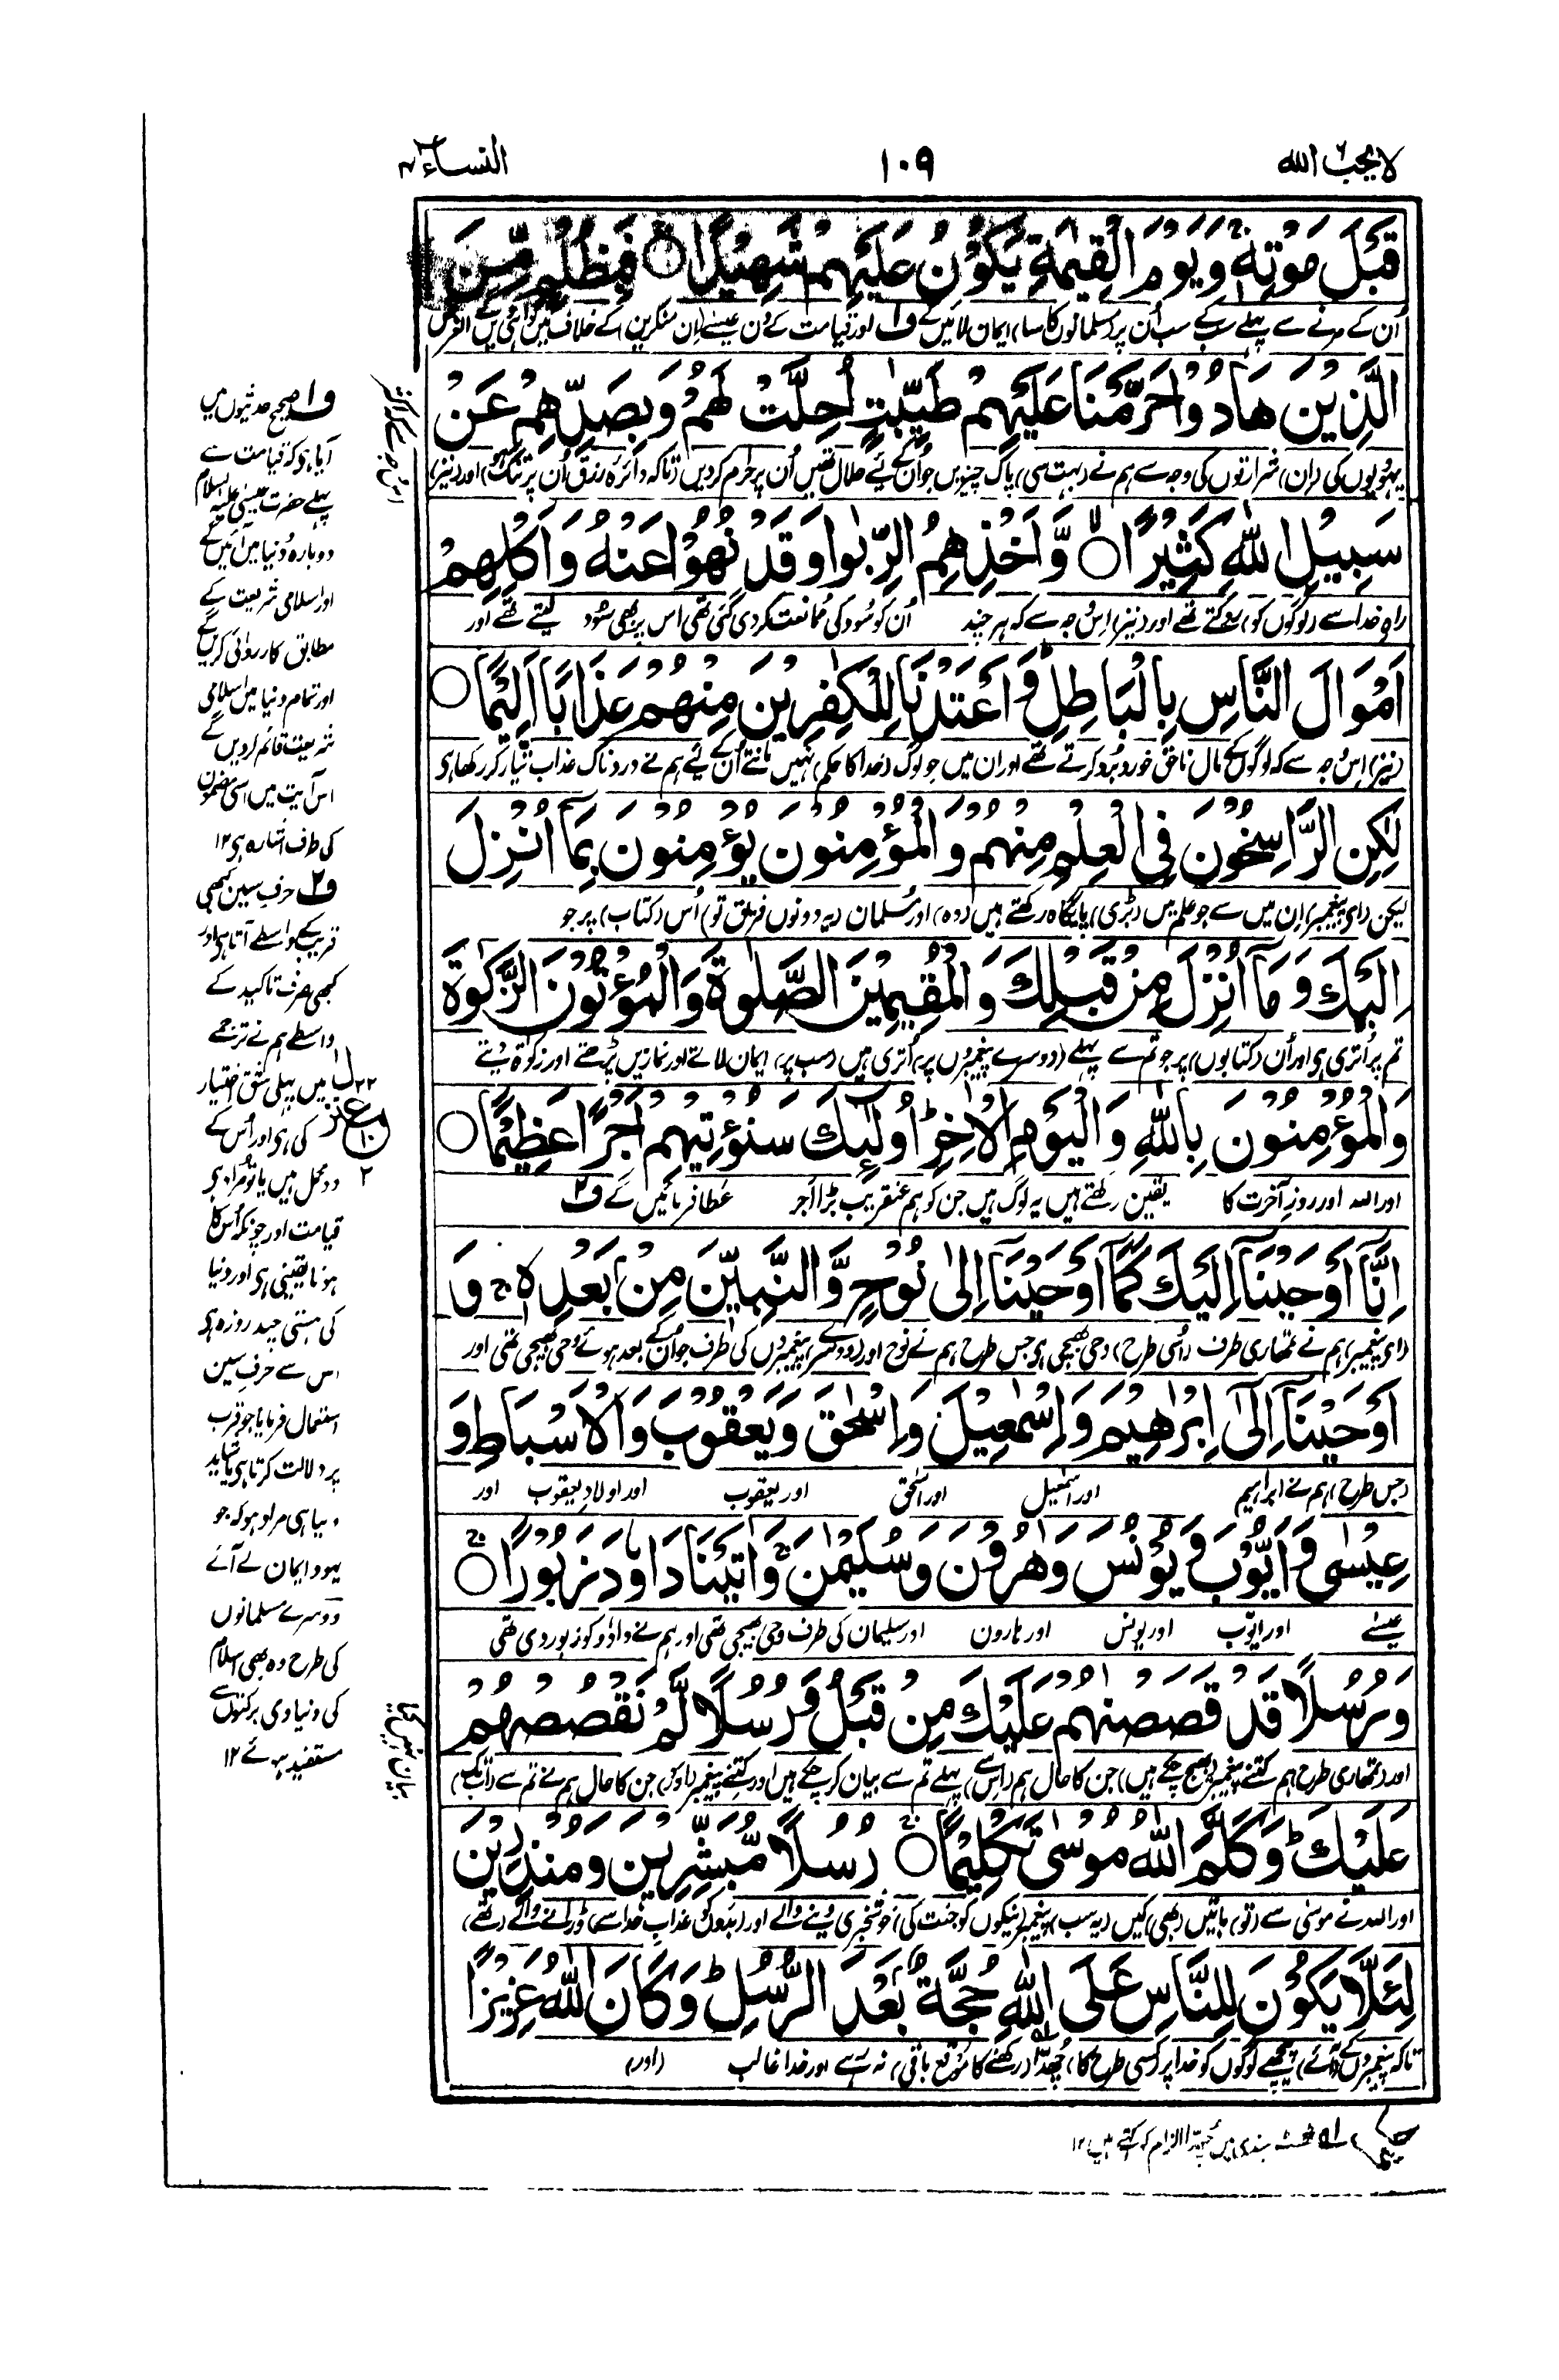 لا یحب الله ۶
۱۰۹
النساء ۴
قَبْلَ مَوْتِهٖ ۚ وَيَوْمَ الْقِيٰمَةِ يَكُوْنُ عَلَيْهِمْ شَهِيْدًا ۝ فَبِظُلْمٍ مِّنَ
اُن کے مرنے سے پہلے سب کے سب اُن پر (مسلمانوں کا سا) ایمان لائیں گے ف۱ اور قیامت کے دن عیسےٰ اِن (منکرین) کے خلاف میں گواہی دیں گے الغرض
الَّذِيْنَ هَادُوْا حَرَّمْنَا عَلَيْهِمْ طَيِّبٰتٍ اُحِلَّتْ لَهُمْ وَبِصَدِّهِمْ عَنْ
یہودیوں کی (ان) شرارتوں کی وجہ سے ہم نے (بہت سی) پاک چیزیں جو اُن کے لئے حلال تھیں اُن پر حرام کر دیں (تاکہ دائرہ رزق اُن پر تنگ ہو) اور (نیز)
سَبِيْلِ اللّٰهِ كَثِيْرًا ۝ وَّاَخْذِهِمُ الرِّبٰوا وَقَدْ نُهُوْا عَنْهُ وَاَكْلِهِمْ
راہِ خدا سے (لوگوں کو) روکتے تھے اور (نیز) اِس وجہ سے کہ ہر چند اُن کو سُود کی مُمانعت کر دی گئی تھی اس پر بھی سُود لیتے تھے اور
اَمْوَالَ النَّاسِ بِالْبَاطِلِ ؕ وَاَعْتَدْنَا لِلْكٰفِرِيْنَ مِنْهُمْ عَذَابًا اَلِيْمًا ۝
(نیز) اِس وجہ سے کہ لوگوں کے مال ناحق خورد بُرد کرتے تھے اور ان میں جو لوگ (خدا کا حکم) نہیں مانتے اُن کے لیے ہم نے دردناک عذاب تیار کر رکھا ہی
لٰكِنِ الرَّاسِخُوْنَ فِي الْعِلْمِ مِنْهُمْ وَالْمُؤْمِنُوْنَ يُؤْمِنُوْنَ بِمَآ اُنْزِلَ
لیکن (ای پیغمبر) اِن میں سے جو علم میں (بڑی) پایگاہ رکھتے ہیں (وہ) اور مُسلمان (یہ دونوں فریق تو) اُس (کتاب) پر جو
اِلَيْكَ وَمَآ اُنْزِلَ مِنْ قَبْلِكَ وَالْمُقِيْمِيْنَ الصَّلٰوةَ وَالْمُؤْتُوْنَ الزَّكٰوةَ
تم پر اُتری ہی اور اُن (کتابوں) پر جو تم سے پہلے (دوسرے پیغمبروں پر) اُتری ہیں (سب پر) ایمان لاتے اور نمازیں پڑھتے اور زکوٰۃ دیتے
وَالْمُؤْمِنُوْنَ بِاللّٰهِ وَالْيَوْمِ الْاٰخِرِ ؕ اُولٰٓئِكَ سَنُؤْتِيْهِمْ اَجْرًا عَظِيْمًا ۝
اور اللہ اور روزِ آخرت کا یقین رکھتے ہیں یہ لوگ ہیں جن کو ہم عنقریب بڑا اجر عطا فرمائیں گے ف۲
اِنَّآ اَوْحَيْنَآ اِلَيْكَ كَمَآ اَوْحَيْنَآ اِلٰى نُوْحٍ وَّالنَّبِيّٖنَ مِنْۢ بَعْدِهٖ ۚ وَ
(ای پیغمبر) ہم نے تمھاری طرف (اُسی طرح) وحی بھیجی ہی جس طرح ہم نے نوح اور (دوسرے) پیغمبروں کی طرف جو اُن کے بعد ہوئے وحی بھیجی تھی اور
اَوْحَيْنَآ اِلٰٓى اِبْرٰهِيْمَ وَاِسْمٰعِيْلَ وَاِسْحٰقَ وَيَعْقُوْبَ وَالْاَسْبَاطِ وَ
(جس طرح) ہم نے ابراہیم اور اسمٰعیل اور اسحٰق اور یعقوب اور اولادِ یعقوب اور
عِيْسٰى وَاَيُّوْبَ وَيُوْنُسَ وَهٰرُوْنَ وَسُلَيْمٰنَ ۚ وَاٰتَيْنَا دَاوٗدَ زَبُوْرًا ۝
عیسےٰ اور ایّوب اور یونس اور ہارون اور سلیمان کی طرف وحی بھیجی تھی اور ہم نے داوٗد کو زبور دی تھی
وَرُسُلًا قَدْ قَصَصْنٰهُمْ عَلَيْكَ مِنْ قَبْلُ وَرُسُلًا لَّمْ نَقْصُصْهُمْ
اور (تمھاری طرح ہم) کتنے پیغمبر (بھیج چکے ہیں) جن کا حال ہم (اس سے) پہلے تم سے بیان کر چکے ہیں اور کتنے پیغمبر (اَور) جن کا حال ہم نے تم سے (اب تک)
عَلَيْكَ ؕ وَكَلَّمَ اللّٰهُ مُوْسٰى تَكْلِيْمًا ۝ رُسُلًا مُّبَشِّرِيْنَ وَمُنْذِرِيْنَ
اور اللہ نے موسٰی سے (تو) باتیں (بھی) کیں (یہ سب) پیغمبر (نیکوں کو جنت کی) خوشخبری دینے والے اور (بدوں کو عذابِ خدا سے) ڈرانے والے (تھے)
لِئَلَّا يَكُوْنَ لِلنَّاسِ عَلَى اللّٰهِ حُجَّةٌۢ بَعْدَ الرُّسُلِ ؕ وَكَانَ اللّٰهُ عَزِيْزًا
تاکہ پیغمبروں کے (آئے) پیچھے لوگوں کو خدا پر (کسی طرح کا) چھدّا رکھنے کا موقع باقی نہ رہے اور خدا غالب (اور)
بیان نہیں کیا
ف۱ صحیح حدیثوں میں
آیا ہی کہ قیامت سے
پہلے حضرت عیسیٰ علیہ السلام
دوبارہ دُنیا میں آئیں گے
اور اسلامی شریعت کے
مطابق کارروائی کریں گے
اور تمام دنیا میں اسلامی
شریعت قائم کر دیں گے
اس آیت میں اسی مضمون
کی طرف اشارہ ہی ۱۲
ف۲ حرفِ سین کبھی
قریب کے واسطے آتا ہی اور
کبھی صرف تاکید کے
واسطے ہم نے ترجمے
میں پہلی شق اختیار
کی ہی اور اُس کے
دو محمل ہیں یا تو مُراد ہی
قیامت اور چونکہ اُس کا
ہونا یقینی ہی اور دنیا
کی ہستی چند روزہ ہی
اس سے حرفِ سین
استعمال فرمایا جو قرب
پر دلالت کرتا ہی یا شاید
دنیا ہی مراد ہو کہ جو
یہود ایمان لے آئے
دوسرے مسلمانوں
کی طرح وہ بھی اسلام
کی دنیاوی برکتوں سے
مستفید ہوئے ۱۲
ہندی میں چھدّا الزام کو کہتے ہیں ۱۲